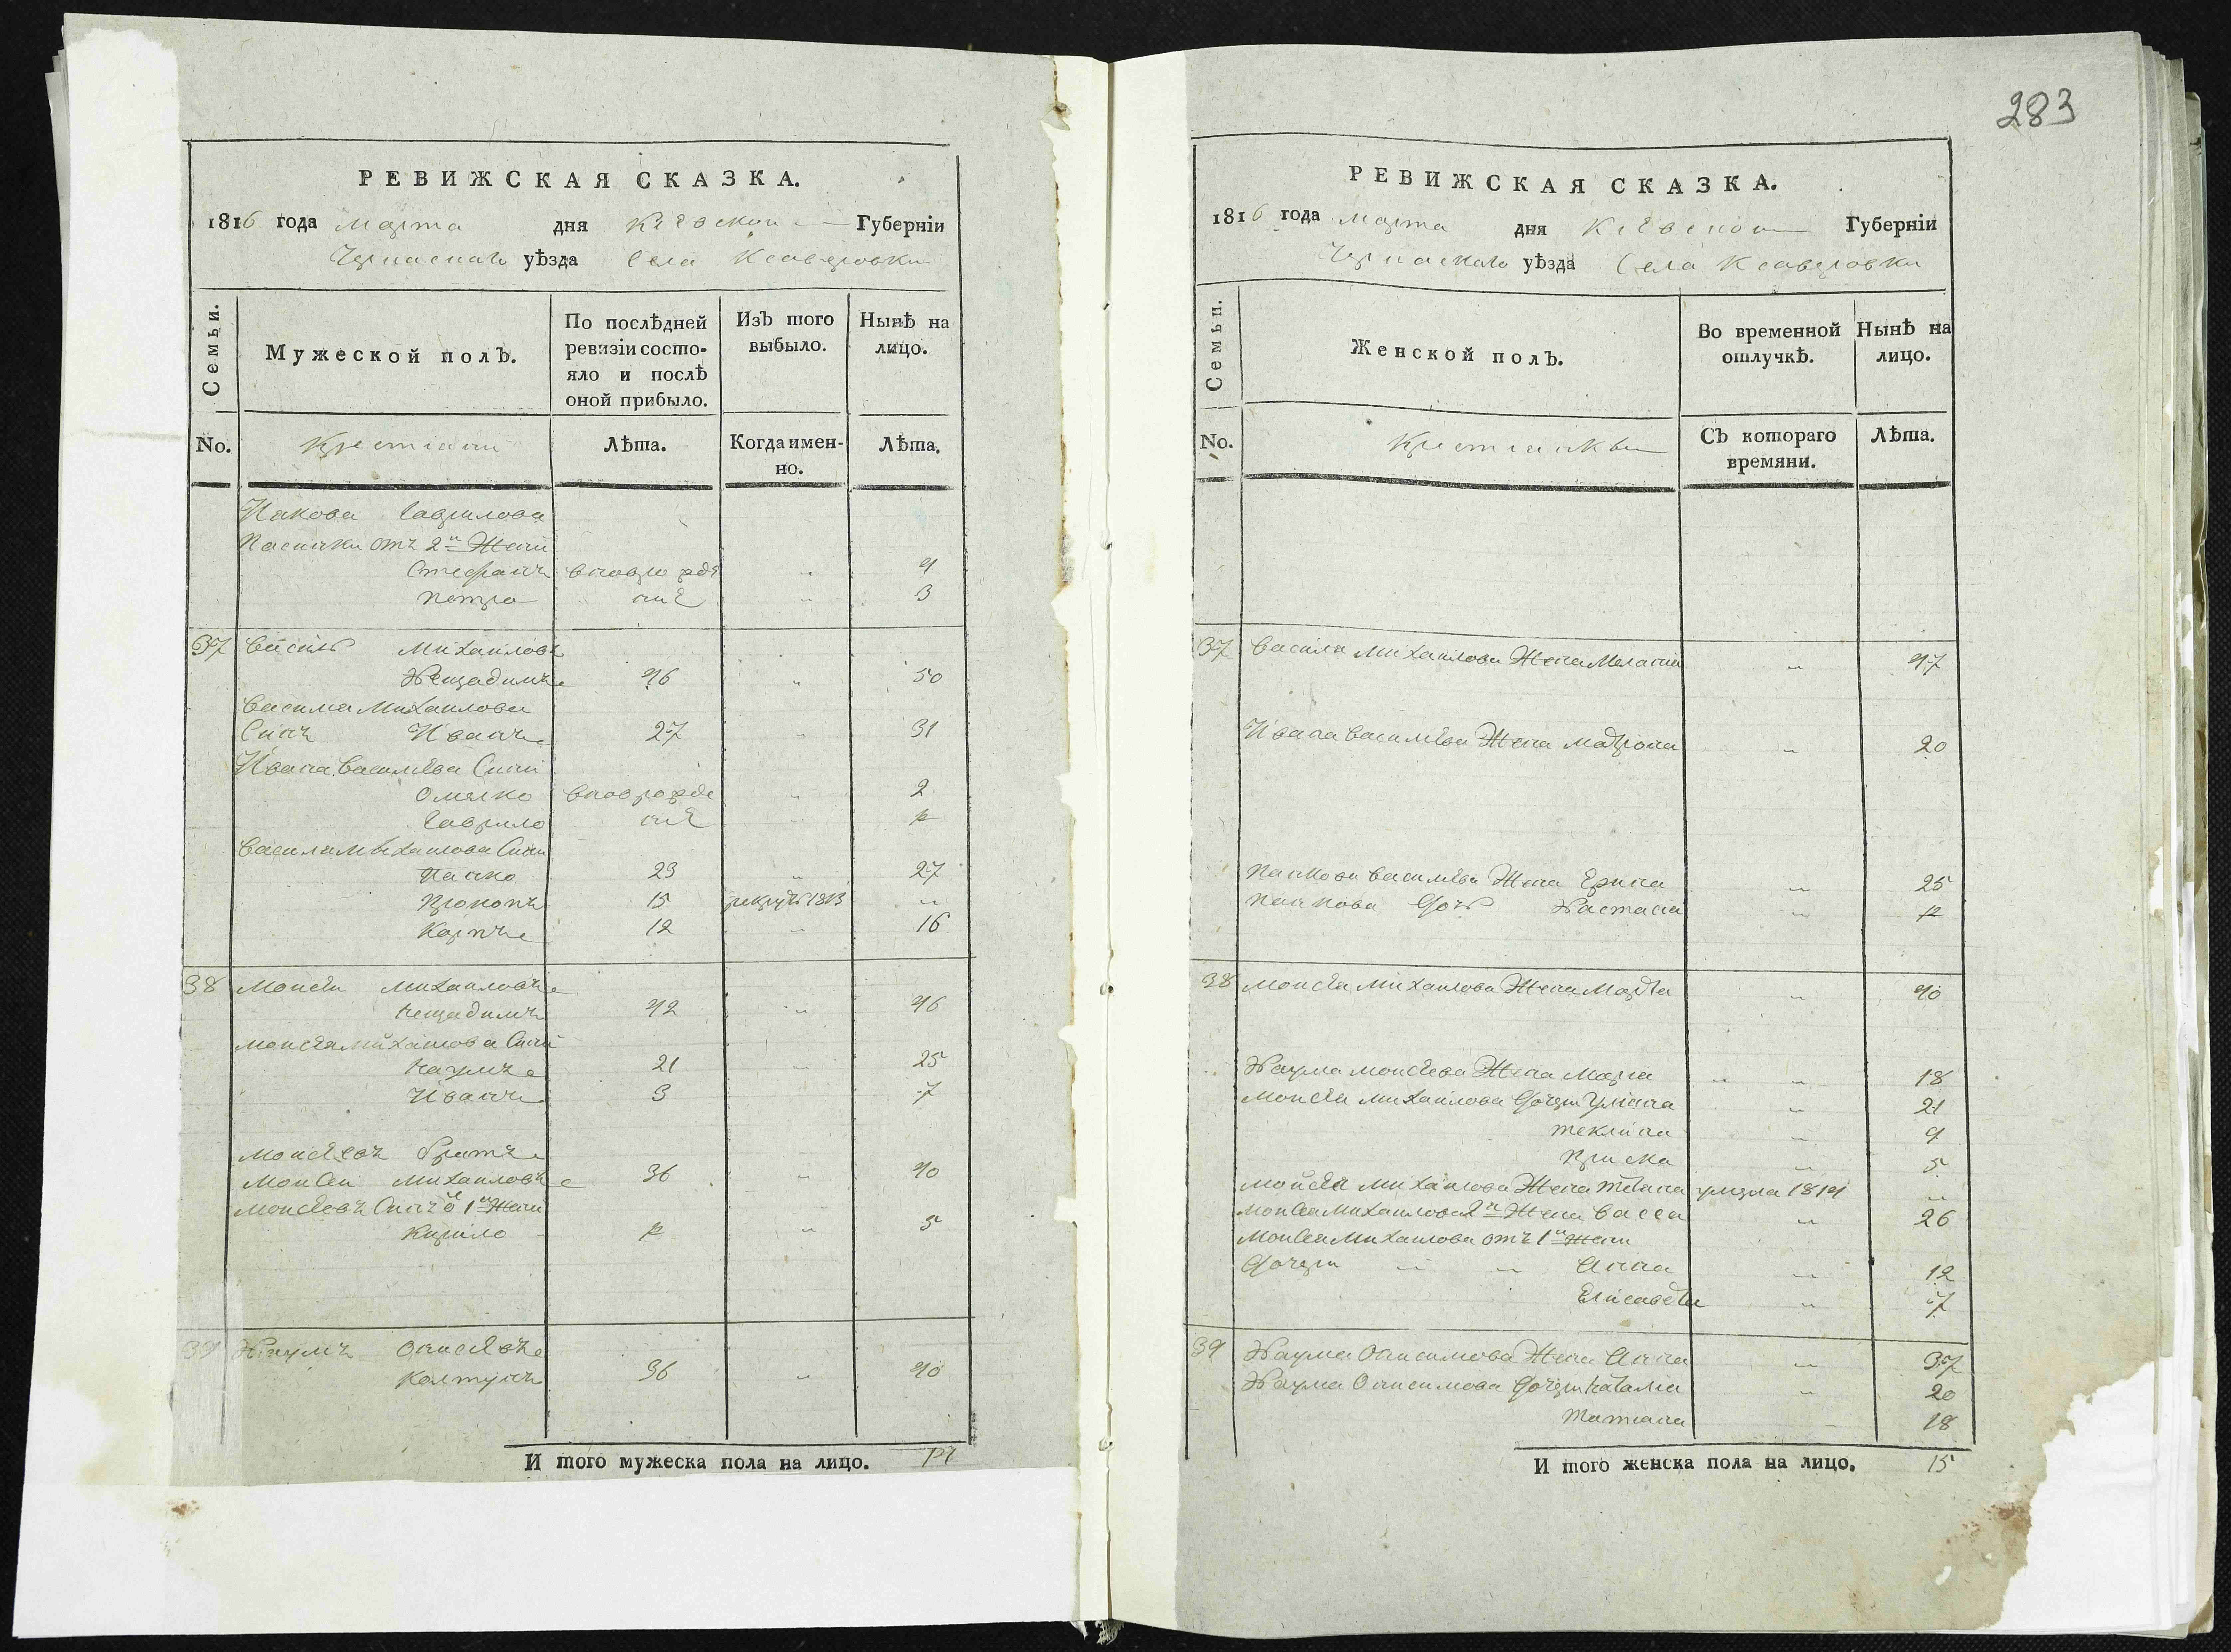 РЕВИЖСКАЯ СКАЗКА.
1816 года марта дня Кіевской Губерніи
Черкаскаго уѣзда Села Ксаверовки
Семьи.
Мужеской полъ.
По послѣдней ревизіи состо-
яло и послѣ
оной прибыло.
Изъ того выбыло.
Нынѣ на лицо.
No.
Крестьяни
Лѣта.
Когда имен-
но.
Лѣта.
Иакова Гаврилова
Пасинки отъ 2й Жени
Стефанъ вновро жде 4
Петро ниѣ 3
37 Василь Михаиловъ
Нещадимъ 46 50
Василиа Михаилова
Синъ Иванъ 27 31
Ивана Василіева Сини
Омелко вновро жде 2
Гаврило ниѣ р
Василиа Михаилова Сини
Панко 23 27
Прокопъ 15 рекрутъ 1813
Карпъ 12 16
38 Моисей Михаиловъ
Нещадимъ 42 46
Моисея Михаилова Сини
Наумъ 21 25
Иванъ 3 7
Моисѣевъ братъ
Моисей Михаиловъ 36 40
Моисеевъ Синъ о 1й Жени
Кирило р 5
39 Наумъ Онисѣвъ
Колтунъ 36 40
И того мужеска пола на лицо. 14
283
РЕВИЖСКАЯ СКАЗКА.
1816 года марта дня Кіевской Губерніи
Черкаскаго уѣзда Села Ксаверовки
Семьи.
Женской полъ.
Во временной отлучкѣ.
Нынѣ на лицо.
No.
Крестіянки
Съ котораго времяни.
Лѣта.
37 Василя Михаилова Жена Меланиа 47
Ивана Василіева Жена Матрона 20
Панкова Василіева Жена Ерина 25
Панкова дочь Настасиа р
38 Моисея Михаилова Жена Марѳа 40
Наума Моисѣева Жена Мариа 18
Моисея Михаилова дочери Улиана 21
Теклина 9
Приска 5
Моисея Михаилова Жена Тетана умерла 1814
Моисея Михаилова 2я Жена Васса 26
Моисея Михаилова отъ 1й Жени
Дочери Анна 12
Елисавета 7
39 Наума Онисимова Жена Анна 37
Наума Онисимова дочери Наталиа 20
Татиана 18
И того женска пола на лицо. 15